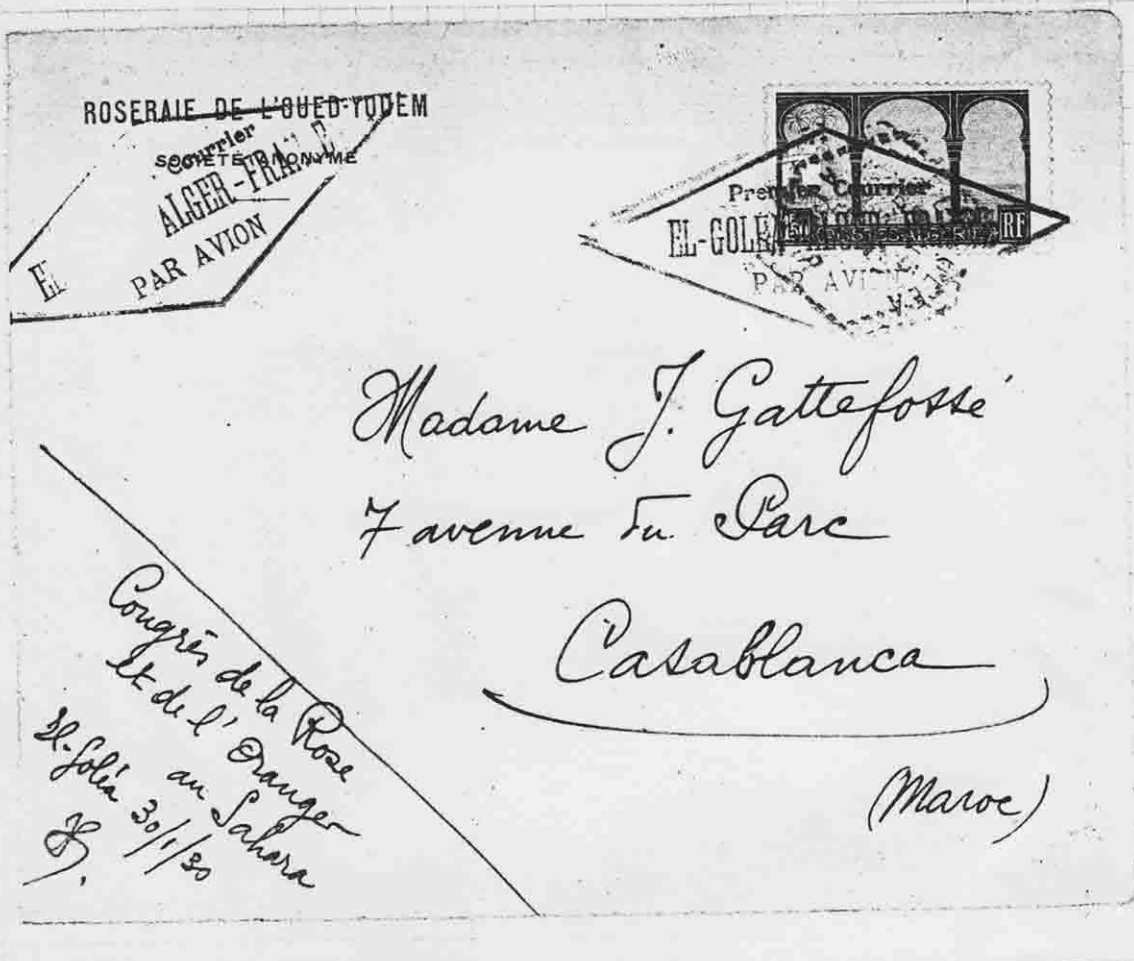 ROSERAIE DE L'OUED-YQUEM
SOCIÉTÉ ANONYME
Courrier
ALGER-FRANCE
PAR AVION
EL
Premier Courrier
EL-GOLEA-ALGER-FRANCE
PAR AVION
RF
Madame J. Gattefossé
7 avenue du Parc
Casablanca
(Maroc)
Congrès de la Rose
et de l'Oranger
au Sahara
El-Goléa 30/1/30